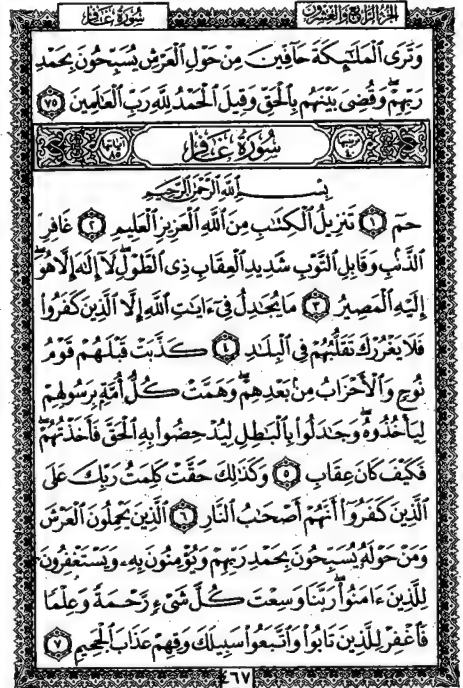 سُورَةُ غَافِرٍ
الجُزْءُ الرَّابِعُ وَالعِشْرُونَ
وَتَرَى ٱلْمَلَٰٓئِكَةَ حَآفِّينَ مِنْ حَوْلِ ٱلْعَرْشِ يُسَبِّحُونَ بِحَمْدِ
رَبِّهِمْۖ وَقُضِىَ بَيْنَهُم بِٱلْحَقِّ وَقِيلَ ٱلْحَمْدُ لِلَّهِ رَبِّ ٱلْعَٰلَمِينَ ٧٥
ترتيبها ٤٠ سُورَةُ غَافِرٍ آياتها ٨٥
بِسْمِ ٱللَّهِ ٱلرَّحْمَٰنِ ٱلرَّحِيمِ
حمٓ ١ تَنزِيلُ ٱلْكِتَٰبِ مِنَ ٱللَّهِ ٱلْعَزِيزِ ٱلْعَلِيمِ ٢ غَافِرِ
ٱلذَّنۢبِ وَقَابِلِ ٱلتَّوْبِ شَدِيدِ ٱلْعِقَابِ ذِى ٱلطَّوْلِۖ لَآ إِلَٰهَ إِلَّا هُوَۖ
إِلَيْهِ ٱلْمَصِيرُ ٣ مَا يُجَٰدِلُ فِىٓ ءَايَٰتِ ٱللَّهِ إِلَّا ٱلَّذِينَ كَفَرُوا۟
فَلَا يَغْرُرْكَ تَقَلُّبُهُمْ فِى ٱلْبِلَٰدِ ٤ كَذَّبَتْ قَبْلَهُمْ قَوْمُ
نُوحٍ وَٱلْأَحْزَابُ مِنۢ بَعْدِهِمْۖ وَهَمَّتْ كُلُّ أُمَّةٍۭ بِرَسُولِهِمْ
لِيَأْخُذُوهُۖ وَجَٰدَلُوا۟ بِٱلْبَٰطِلِ لِيُدْحِضُوا۟ بِهِ ٱلْحَقَّ فَأَخَذْتُهُمْۖ
فَكَيْفَ كَانَ عِقَابِ ٥ وَكَذَٰلِكَ حَقَّتْ كَلِمَتُ رَبِّكَ عَلَى
ٱلَّذِينَ كَفَرُوٓا۟ أَنَّهُمْ أَصْحَٰبُ ٱلنَّارِ ٦ ٱلَّذِينَ يَحْمِلُونَ ٱلْعَرْشَ
وَمَنْ حَوْلَهُۥ يُسَبِّحُونَ بِحَمْدِ رَبِّهِمْ وَيُؤْمِنُونَ بِهِۦ وَيَسْتَغْفِرُونَ
لِلَّذِينَ ءَامَنُوا۟ۖ رَبَّنَا وَسِعْتَ كُلَّ شَىْءٍ رَّحْمَةً وَعِلْمًا
فَٱغْفِرْ لِلَّذِينَ تَابُوا۟ وَٱتَّبَعُوا۟ سَبِيلَكَ وَقِهِمْ عَذَابَ ٱلْجَحِيمِ ٧
٤٦٧